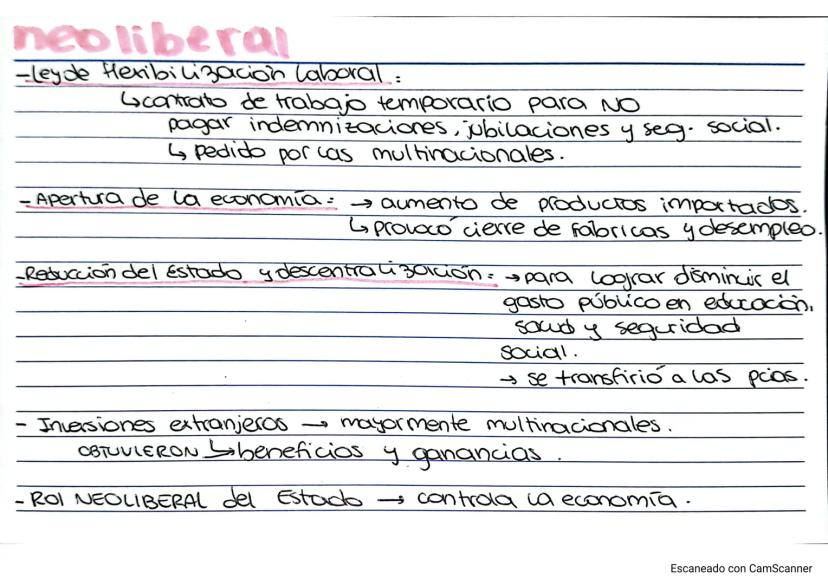 neoliberal
-Ley de flexibilización laboral:
↳contrato de trabajo temporario para NO
pagar indemnizaciones, jubilaciones y seg. social.
↳ Pedido por las multinacionales.
- Apertura de la economía: → aumento de productos importados.
↳provocó cierre de fábricas y desempleo.
-Reducción del Estado y descentralización: → para lograr disminuir el
gasto público en educación,
salud y seguridad
social.
→ se transfirió a las pcias.
- Inversiones extranjeros → mayormente multinacionales.
OBTUVIERON ↳beneficios y ganancias.
- ROl NEOLIBERAL del Estado → controla la economía.
Escaneado con CamScanner